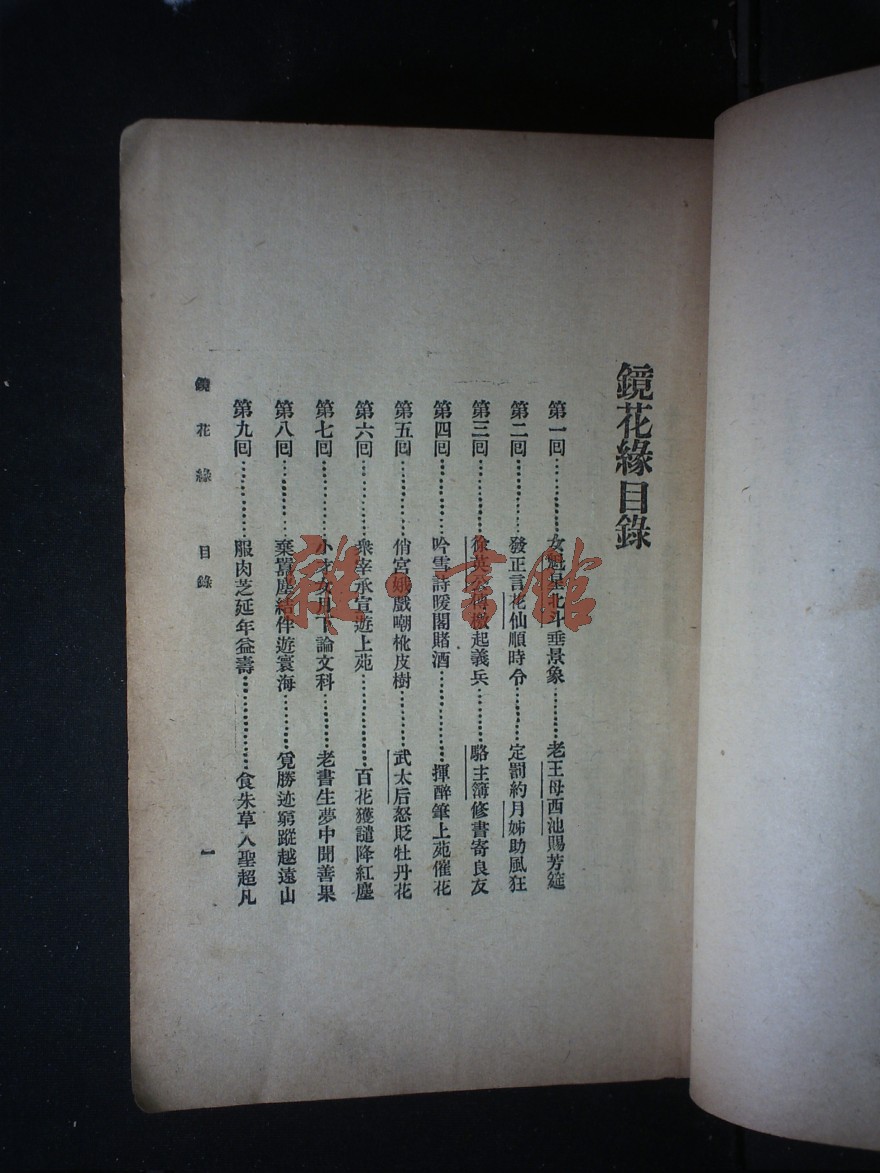 鏡花緣目錄
第一回………女魁星北斗垂景象………老王母西池賜芳筵
第二回………發正言花仙順時令………定罰約月姊助風狂
第三回………徐英公傳檄起義兵………駱主簿修書寄良友
第四回………吟雪詩暖閣賭酒………揮醉筆上苑催花
第五回………俏宮娥戲嘲枇皮樹………武太后怒貶牡丹花
第六回………衆宰承宣遊上苑………百花獲譴降紅塵
第七回………小才女月下論文科………老書生夢中聞善果
第八回………棄囂塵結伴遊寰海………覓勝迹窮蹤越遠山
第九回………服肉芝延年益壽………食朱草入聖超凡
鏡花緣 目錄 一
雜·書館